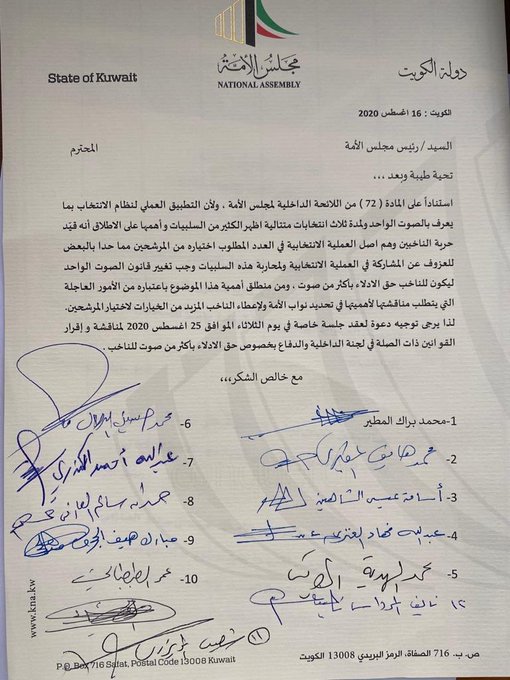 State of Kuwait
مجلس الأمة
NATIONAL ASSEMBLY
دولة الكويت
الكويت : 16 اغسطس 2020
السيد / رئيس مجلس الأمة
المحترم
تحية طيبة وبعد ،،،
استناداً على المادة ( 72 ) من اللائحة الداخلية لمجلس الأمة ، ولأن التطبيق العملي لنظام الانتخاب بما
يعرف بالصوت الواحد ولمدة ثلاث انتخابات متتالية اظهر الكثير من السلبيات وأهمها على الاطلاق أنه قيّد
حرية الناخبين وهم اصل العملية الانتخابية في العدد المطلوب اختياره من المرشحين مما حدا بالبعض
للعزوف عن المشاركة في العملية الانتخابية ولمحاربة هذه السلبيات وجب تغيير قانون الصوت الواحد
ليكون للناخب حق الادلاء بأكثر من صوت ، ومن منطلق أهمية هذا الموضوع باعتباره من الأمور العاجلة
التي يتطلب مناقشتها لأهميتها في تحديد نواب الأمة ولإعطاء الناخب المزيد من الخيارات لاختيار المرشحين.
لذا يرجى توجيه دعوة لعقد جلسة خاصة في يوم الثلاثاء الموافق 25 اغسطس 2020 لمناقشة و إقرار
القوانين ذات الصلة في لجنة الداخلية والدفاع بخصوص حق الادلاء بأكثر من صوت للناخب .
مع خالص الشكر،،،
1-محمد براك المطير
2- محمد هايف المطيري
3- أسامة عيسى الشاهين
4- عبدالله فهاد العنزي
5- محمد الهدية
12 نايف المرداس
6- محمد حسين الدلال
7- عبدالله أحمد الكندري
8- حمدان سالم العازمي
9- مبارك هيف الحجرف
10- عمر الطبطبائي
11 شعيب المويزري
www.kna.kw
P.O. Box 716 Safat, Postal Code 13008 Kuwait
ص. ب. 716 الصفاة، الرمز البريدي 13008 الكويت